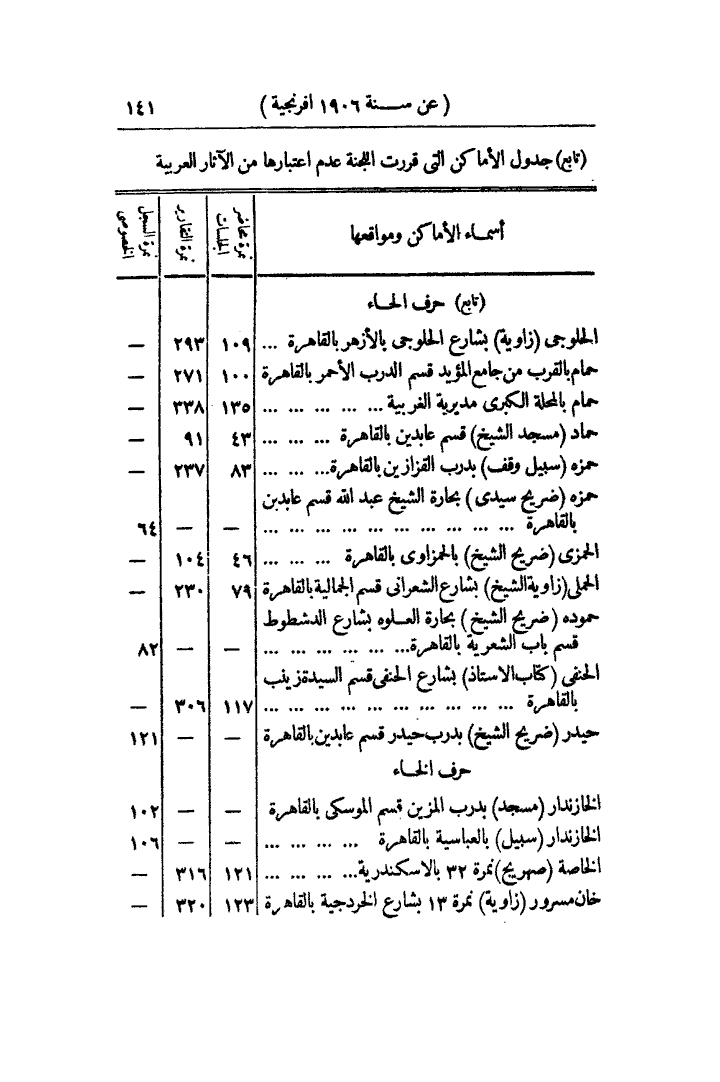 (عن سنة ١٩٠٦ افرنجية) ١٤١
(تابع) جدول الأماكن التى قررت اللجنة عدم اعتبارها من الآثار العربية
أسماء الأماكن ومواقعها | نمرة محاضر الجلسات | نمرة التقارير | نمرة السجل الخصوصى
(تابع) حرف الحاء
الحلوجى (زاوية) بشارع الحلوجى بالأزهر بالقاهرة ... ١٠٩ ٢٩٣ —
حمام بالقرب من جامع المؤيد قسم الدرب الأحمر بالقاهرة ١٠٠ ٢٧١ —
حمام بالمحلة الكبرى مديرية الغربية ... ... ... ... ... ١٣٥ ٣٣٨ —
حماد (مسجد الشيخ) قسم عابدين بالقاهرة ... ... ... ٤٣ ٩١ —
حمزه (سبيل وقف) بدرب القزازين بالقاهرة... ... ... ٨٣ ٢٣٧ —
حمزه (ضريح سيدى) بحارة الشيخ عبد الله قسم عابدين
بالقاهرة ... ... ... ... ... ... ... ... ... ... — — ٦٤
الحمزى (ضريح الشيخ) بالحمزاوى بالقاهرة ... ... ... ٤٦ ١٠٤ —
الحملى (زاوية الشيخ) بشارع الشعرانى قسم الجمالية بالقاهرة ٧٩ ٢٣٠ —
حموده (ضريح الشيخ) بحارة العلوه بشارع الدشطوط
قسم باب الشعرية بالقاهرة... ... ... ... ... ... — — ٨٢
الحنفى (كتاب الاستاذ) بشارع الحنفى قسم السيدة زينب
بالقاهرة ... ... ... ... ... ... ... ... ... ... ١١٧ ٣٠٦ —
حيدر (ضريح الشيخ) بدرب حيدر قسم عابدين بالقاهرة — — ١٢١
حرف الخاء
الخازندار (مسجد) بدرب المزين قسم الموسكى بالقاهرة — — ١٠٢
الخازندار (سبيل) بالعباسية بالقاهرة ... ... ... ... — — ١٠٦
الخاصة (صهريج) نمرة ٣٢ بالاسكندرية... ... ... ... ١٢١ ٣١٦ —
خان مسرور (زاوية) نمرة ١٣ بشارع الخردجية بالقاهرة ١٢٣ ٣٢٠ —